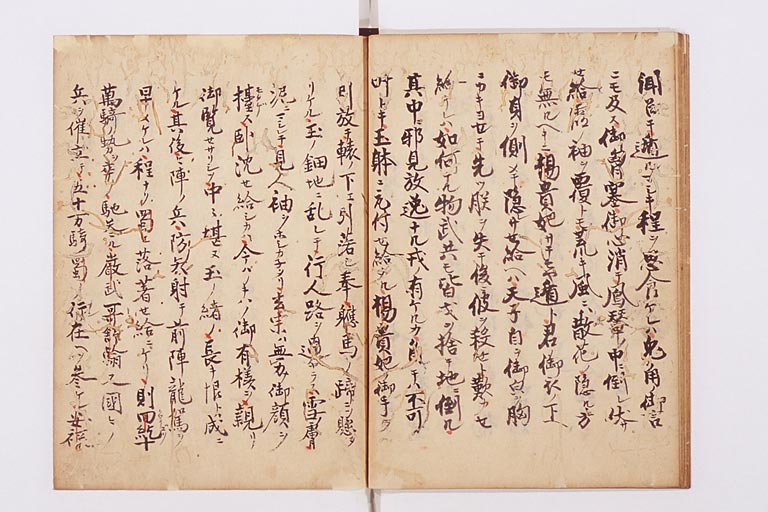 遁ルマシキ程ヲ思食ケレハ兎角御言
ニモ及ス御胸塞御心消テ鳳輦ノ中ニ倒レ伏サ
セ給霞ノ袖ヲ覆トモ荒キ風ニ散花ノ隠ル方
モ無レハ楊貴妃サテモヤ遁ト君ノ御衣ノ下ヘ
御身ヲ側メテ隠サセ給ヘハ天子自ラ御自ノ胸
ニカキヨセテ先ツ朕ヲ失テ後彼ヲ殺セト歎カセ
給ケレハ如何ナル物武共モ皆戈ヲ捨テ地ニ倒ル
其中ニ邪見放逸ナル戎ノ有ケルカ角テハ不可
叶トテ玉躰ニ取付セ給タル楊貴妃ノ御手ヲ
引放テ轅ノ下ヘ引落シ奉リ軈馬ノ蹄ニ懸
リケル玉ノ鈿地ニ乱レテ行人路ヲ過 雪膚
泥ニ 見人袖ヲホシカネタリ玄宗ハ無力御顔ヲ
擡ス臥沈セ給シカハ今ハノキハノ御有様ヲ親リ
御覧セサリシ中ニ堪ヌ玉ノ緒ノ長キ恨ト成ニ
ケル其後ニ陣ノ兵ハ防矢射テ前陣ノ龍駕ヲ
早メケレハ程ナク蜀ヘ落着セ給ニケリ則四
萬騎ノ勢ヲ率シ馳参ル厳武哥舒翰又国々ノ
兵ヲ催立テ五十万騎蜀ノ行在ヘソ参ケル安禄